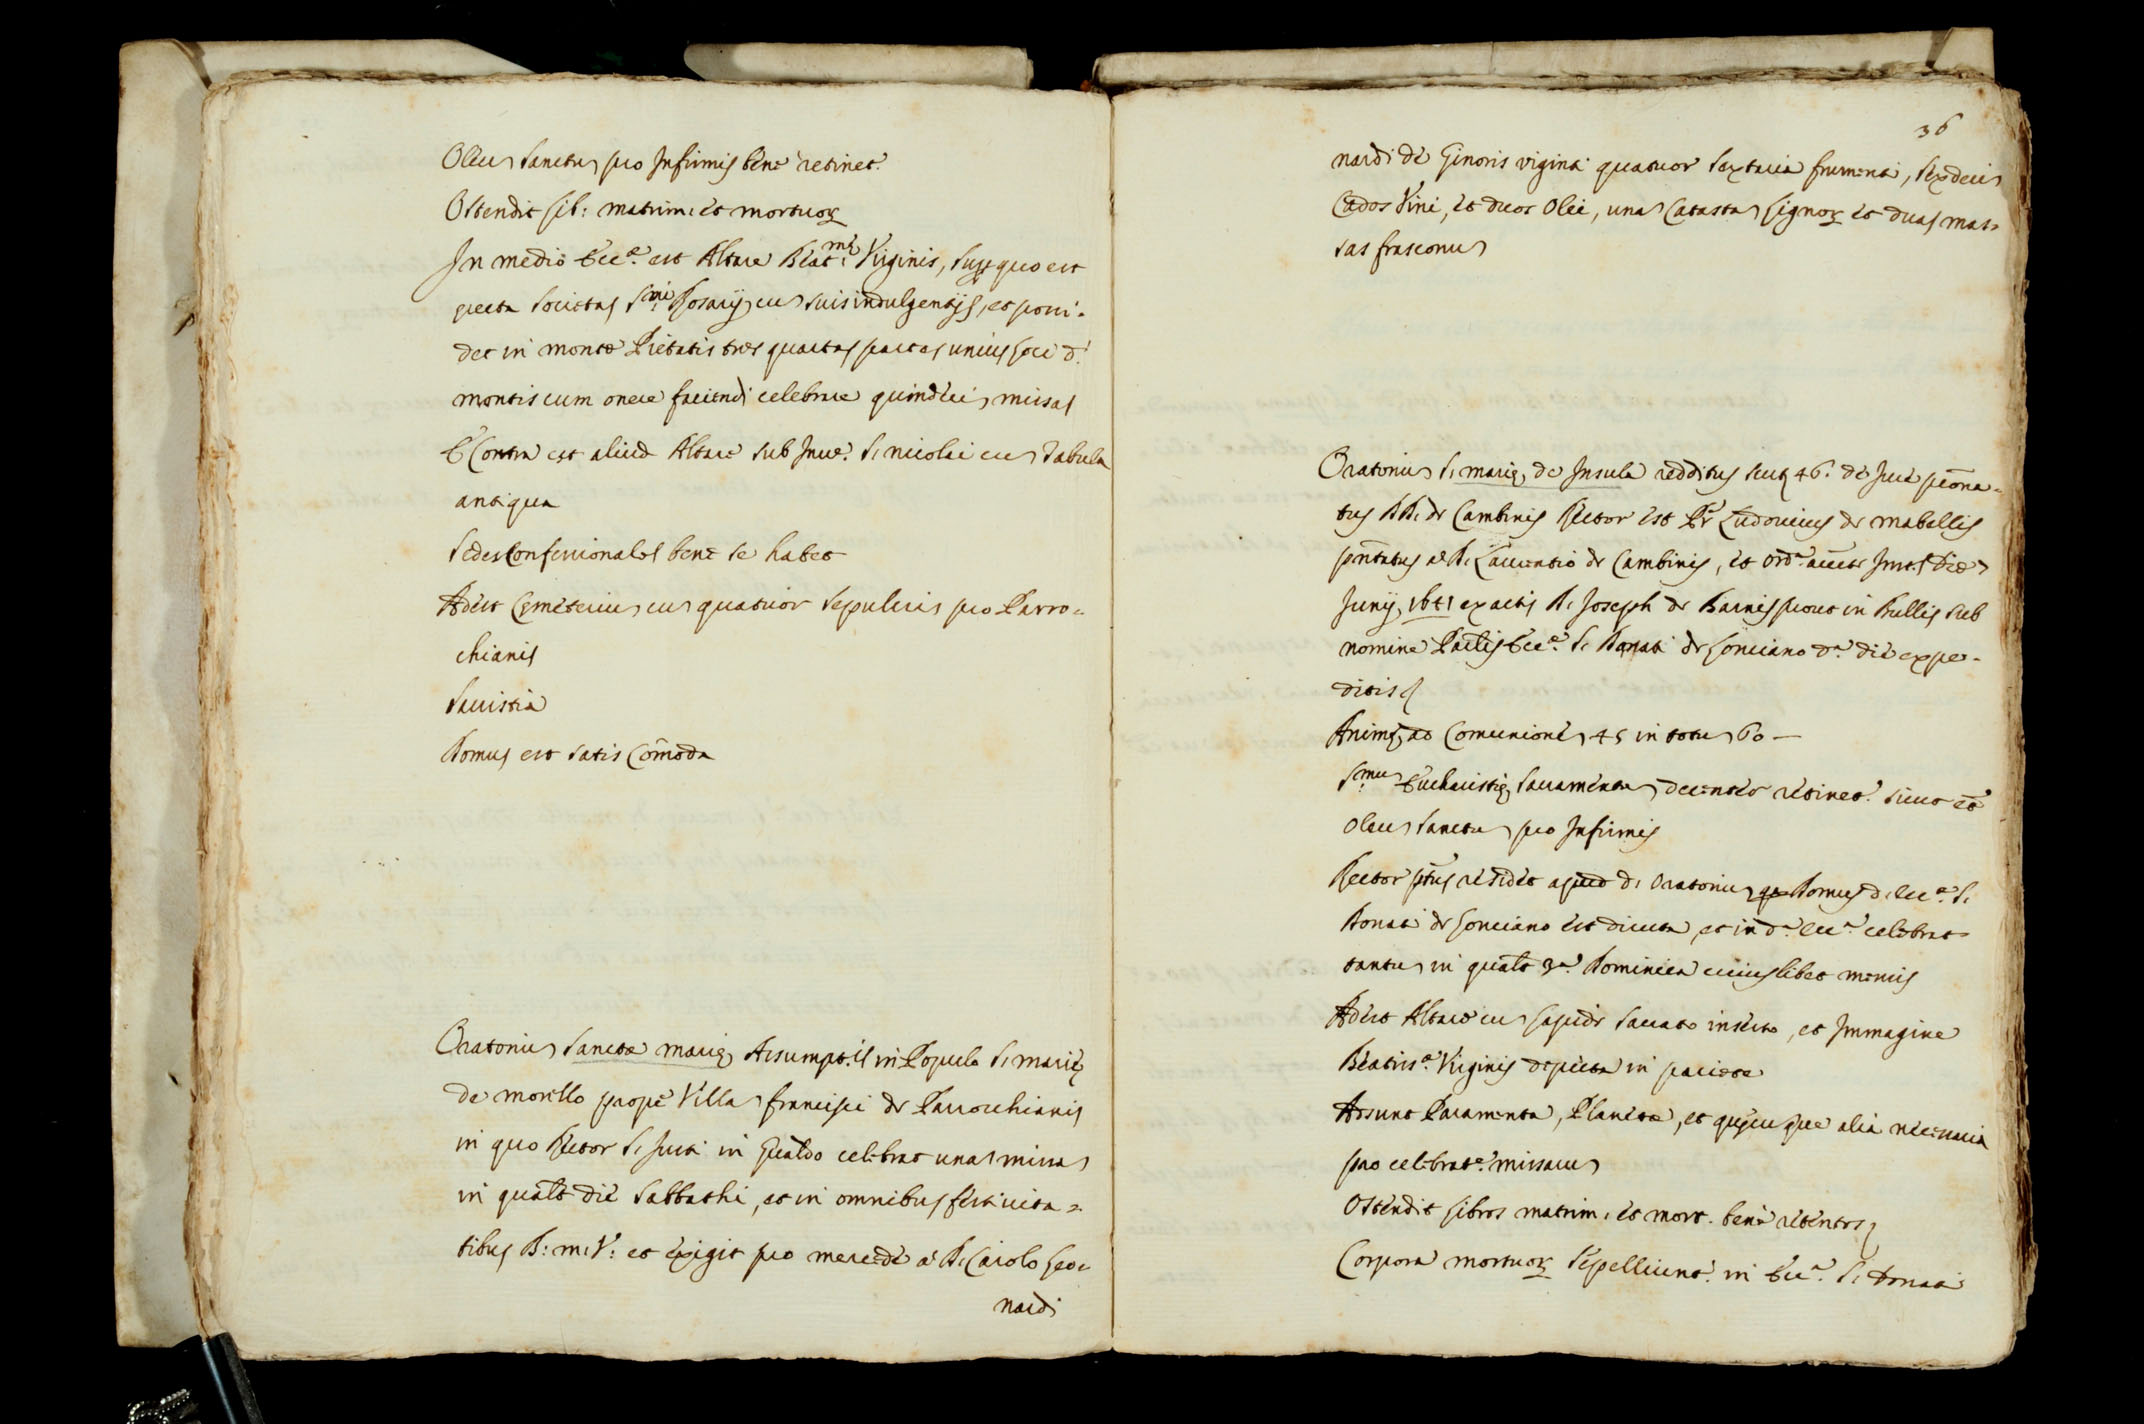 Oleu Sanctu pro Infirmis bene retinet.
Ostendit lib: matrim: et mortuor
In medio Ecc.ª est Altare Beat.mę Virginis, super quo est
erecta Societas S.mi Rosarij cu suis indulgentijs, et possi-
det in monte Pietatis tres quartas partas unius loci d.
montis cum onere faciendi celebrare quindeci missas
E Contra est aliud Altare sub Invo. S. nicolai cu Tabula
antiqua
Sedes Confessionales bene se habet
Adest Cęmeteriu cu quatuor sepulcris pro Parro-
chianis
Sacristia
Domus est satis Comoda
Oratoriu Sanctæ marię Assumpt.is in Populo S. marię
de morello prope Villa francisci de Parrochianis
in quo Rector S. Justi in Gualdo celebrat una missa
in qualt die Sabbathi, et in omnibus festivita-
tibus B: M: V: et exigit pro mercede a D. Carolo Leo-
nardi
36
nardi de Ginoris viginti quatuor sextaria frumenti, sexdeci
Cados Vini, et duos Olei, una Catasta lignor et duas mas-
sas frasconu
Oratoriu S. marię de Insula redditus scut 46. de Jure prona-
tus DD. de Cambinis Rector est Pr Ludovicus de mabellis
pntatus a D. Laurentio de Cambinis, et ord.ª aucte Inst. Die
Junij 1641 ex actis D. Joseph de Barnis prout in Bullis sub
nomine Partis Ecc.ę S. Donati de Lonciano d.ª die expe-
ditis
Animę ad Comunione 45 in totu 60 —
S.mu Eucharistię Sacramentu decenter retinet. sicut et
oleu sanctu pro Infirmis
Rector ptus residet apud d. Oratoriu qa Domus d. ecc.ę S.
Donati de Lonciano est diruta, et in d.ª ecc.ª celebrat
tantu in qualt 3.ª Dominica cuiuslibet mensis
Adest Altare cu lapide sacrato inserto, et Immagine
Beatiss.ę Virginis depicta in pariete
Adsunt Paramenta, Planetæ, et quęcuque alia necessaria
pro celebrat.e missaru
Ostendit libros matrim. et mort. bene retentos
Corpora mortuor sepelliunt. in Ecc.ª S. Donati